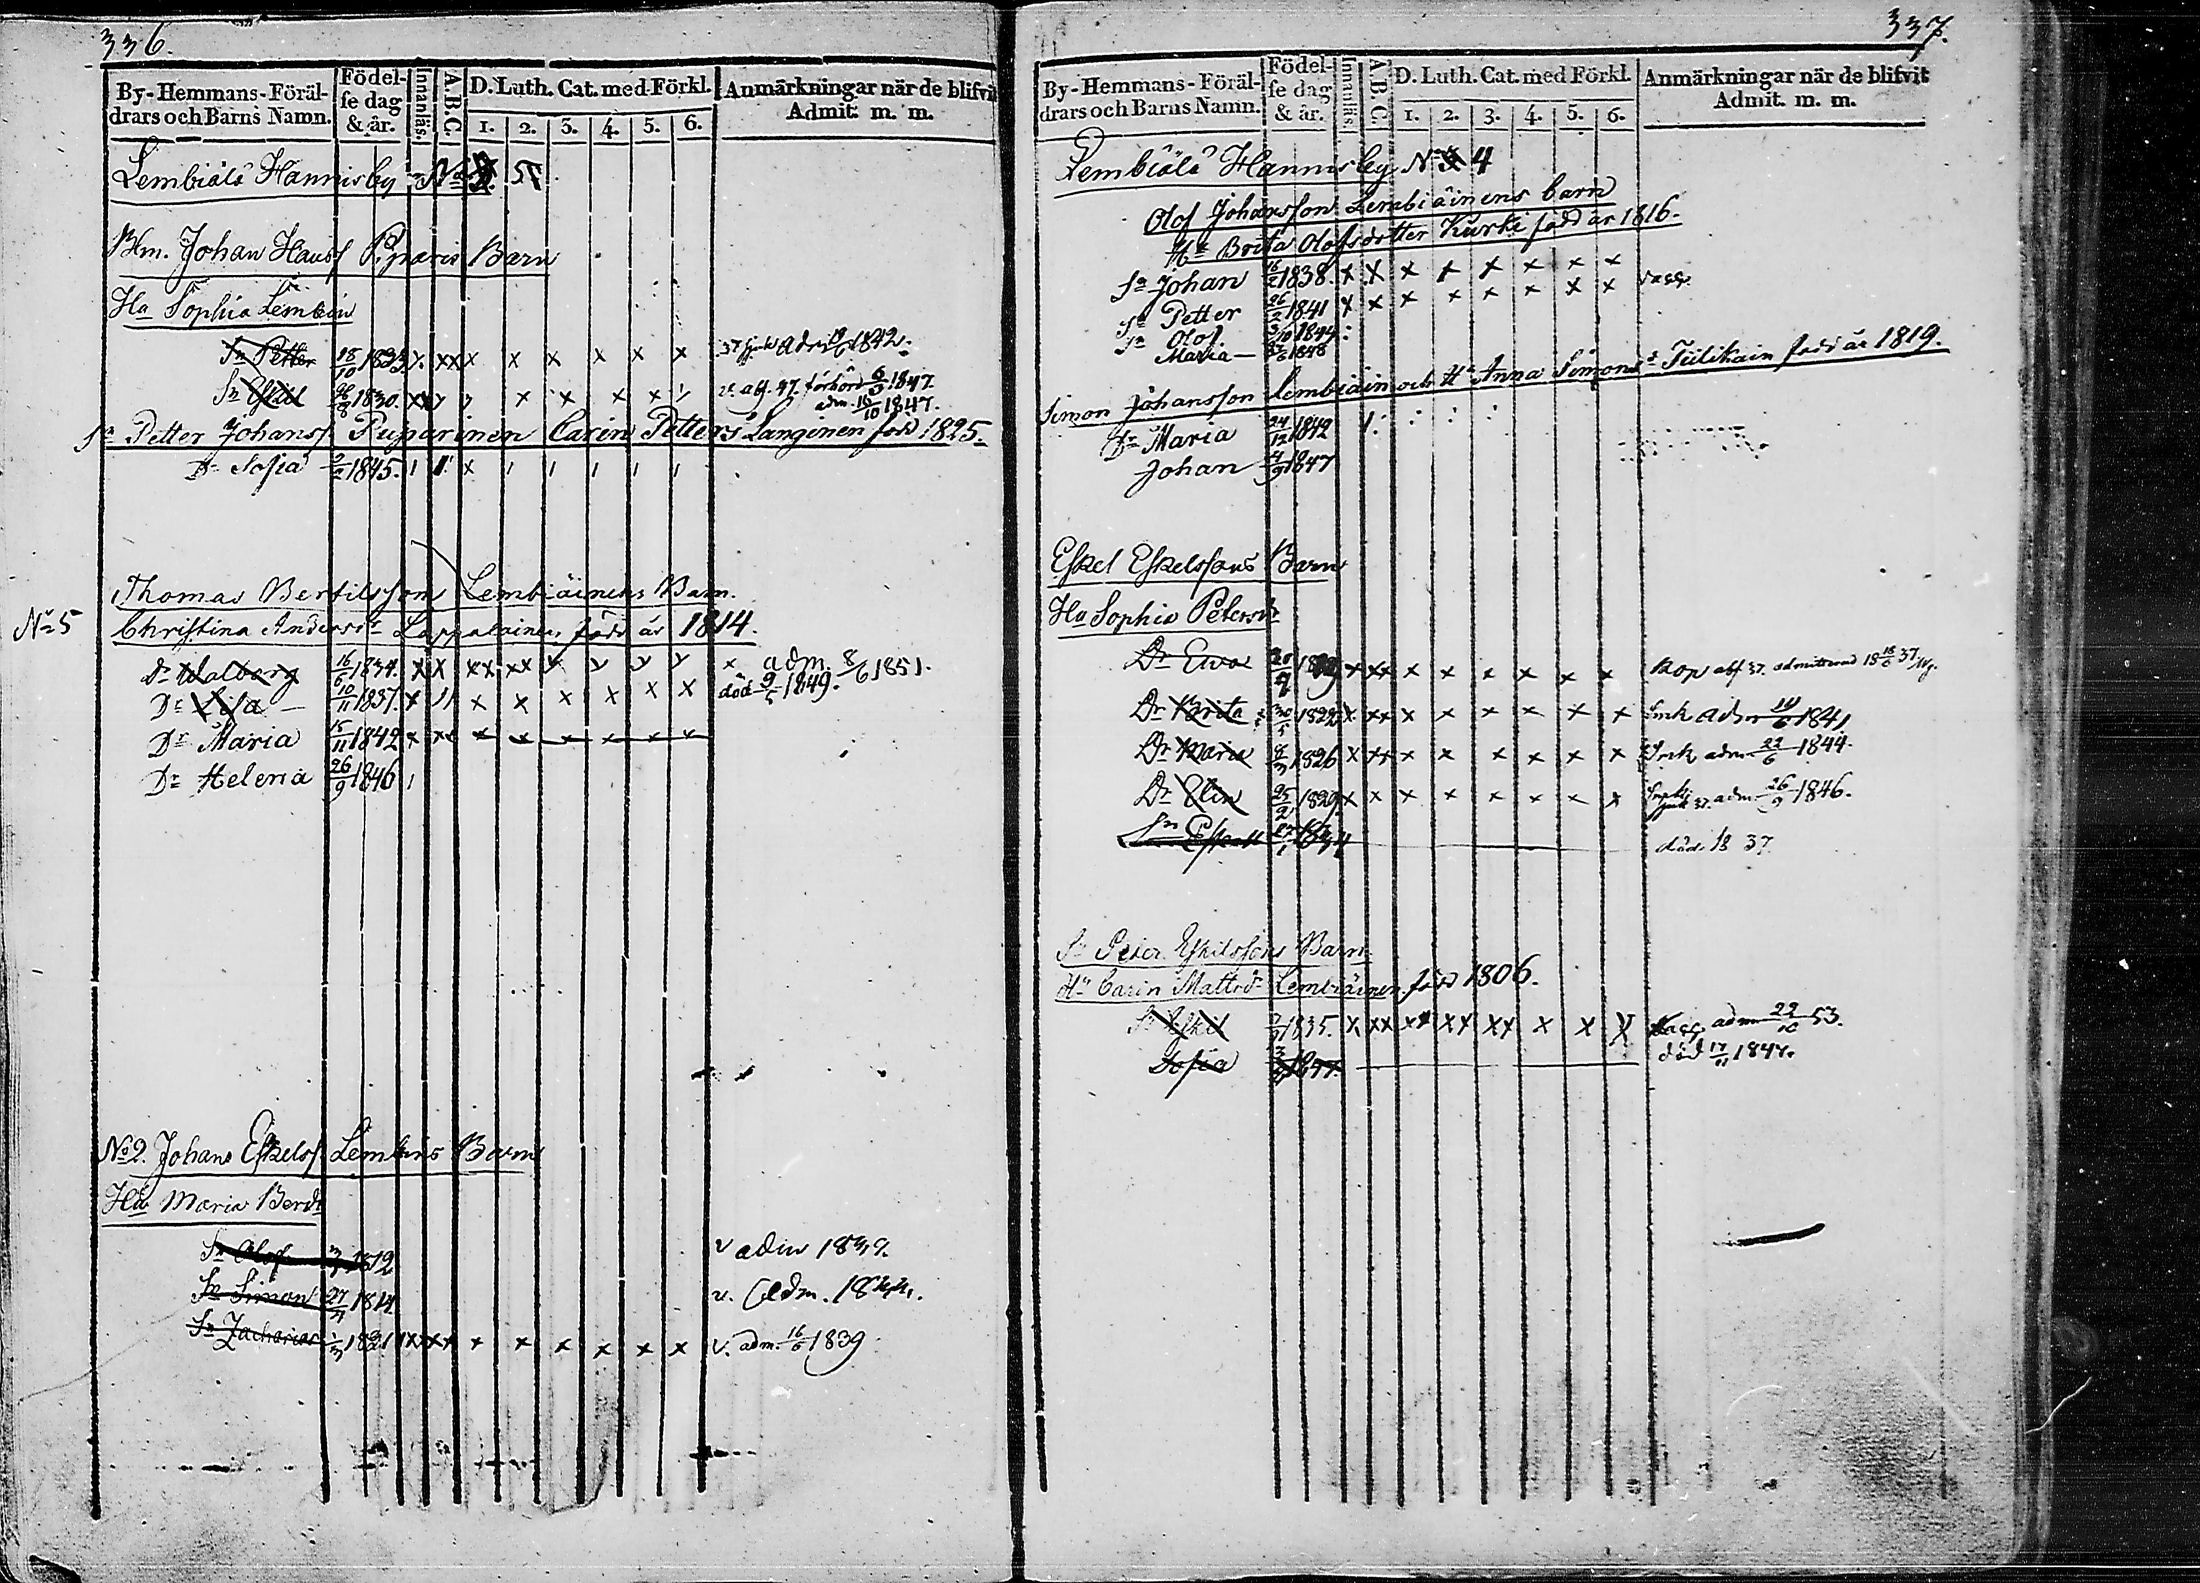 336.
By-Hemmans-Föräl-
drars och Barns Namn.
Födel-
se dag
& år.
Innanläs.
A.B.C.
D. Luth. Cat. med Förkl.
1. 2. 3. 4. 5. 6.
Anmärkningar när de blifvit
Admit. m. m.
Lembiälä Hannisby No 5
Bm. Johan Hanss Piparis Barn
Ha Sophia Lembin
Sn Petter 18/10 1823 x xx x x x x x x adm 1842.
Sn Eskil 1830. förhör 6/3 1847.
adm. 16/10 1847.
Sn Petter Johanss Piiparinen Carin Petters Langinen född 1825.
Dr Sofia 2/2 1845.
Thomas Bertilsson Lembiäinens Barn.
No 5 Christina Andersdr Lappalainen född år 1814.
Dr Walborg 16/6 1834. x x xx xx x adm. 8/6 1851.
Dr Lisa 10/11 1837. x x x x x x x död 9/5 1849.
Dr Maria 15/11 1842 x xx x x x x x x
Dr Helena 26/9 1846
No 2. Johans Eskelss Lembins Barn
Ha Maria Berdr
Sn Olof 1812 v adm
Sn Simon 27/ 1814 v. Adm.
Sn Zacharias 1821 x x x x x x v. adm. 16/6 1839
337.
By-Hemmans-Föräl-
drars och Barns Namn.
Födel-
se dag
& år.
Innanläs.
A.B.C.
D. Luth. Cat. med Förkl.
1. 2. 3. 4. 5. 6.
Anmärkningar när de blifvit
Admit. m. m.
Lembiälä Hannisby No 4
Olof Johansson Lembiäinens barn
Ha Brita Olofsdotter Kurki född år 1816.
Sn Johan 16/2 1838. x x x x x x x x vacc.
Sn Petter 26/2 1841 x x x x x x x x
Sn Olof 3/10 1844
Maria 1848
Simon Johansson Lembiäin och Ha Anna Simonsdr Tiilikain född år 1819.
Dr Maria 24/12 1842
Johan 4/9 1847
Eskel Eskelssons Barn
Ha Sophia Petersdr
Dr Ewa x xx x x x x x x admitterad 18 18/6 37
Dr Brita 30/5 1822 x xx x x x x x x adm 1841
Dr Maria 8/3 1826 x xx x x x x x x adm 22/6 1844.
Dr Elin 25/2 1829 x x x x x x x x adm 26/9 1846.
Sn död 1837
Sn Peter Eskilssons Barn
Ha Carin Mattsdr Lembiäinen född 1806.
Sn Eskil 1835. x xx xx xx xx x x x vacc. adm 22/10 53.
Sofia 1847. död 17/11 1847.